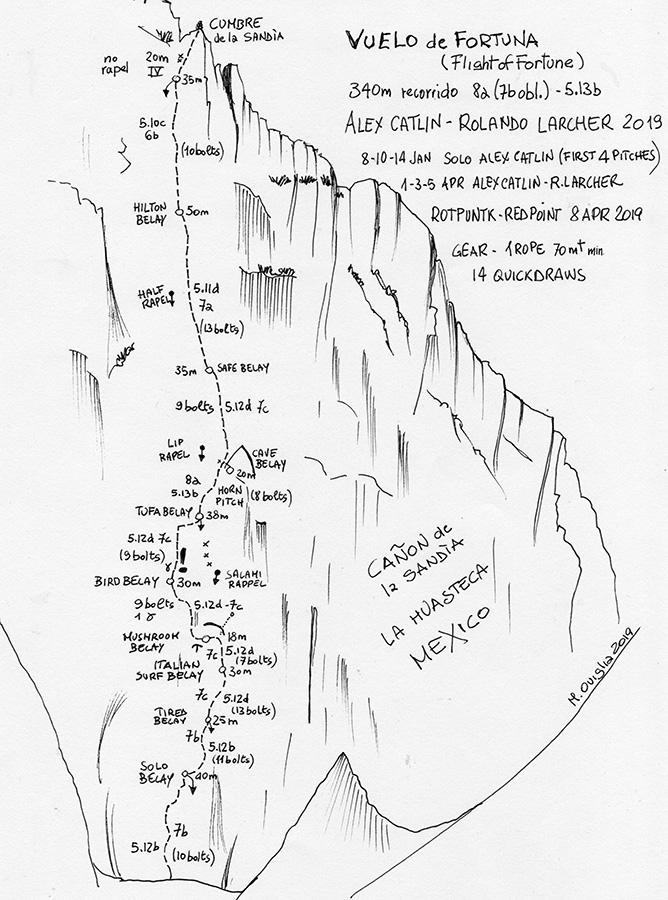 CUMBRE
de la SANDÌA
VUELO de FORTUNA
(Flight of Fortune)
340m recorrido 8a (7b obl.) - 5.13b
ALEX CATLIN - ROLANDO LARCHER 2019
8-10-14 JAN SOLO ALEX CATLIN (FIRST 4 PITCHES)
1-3-5 APR ALEX CATLIN - R. LARCHER
ROTPUNTK - REDPOINT 8 APR 2019
GEAR - 1 ROPE 70 mt min
14 QUICKDRAWS
no
rapel
20m
IV
35m
5.10c
6b
(10 bolts)
HILTON
BELAY
50m
HALF
RAPEL
5.11d
7a
(13 bolts)
35m
SAFE BELAY
9 bolts
5.12d 7c
LIP
RAPEL
CAVE
BELAY
20m
8a
5.13b
HORN
PITCH
(8 bolts)
TUFA BELAY
38m
5.12d 7c
(9 bolts)
!
BIRD BELAY
30m
SALAMI
RAPPEL
9 bolts
1
5.12d - 7c
MUSHROOM
BELAY
18m
7c
5.12d
(7 bolts)
ITALIAN
SURF BELAY
30m
7c
5.12d
(13 bolts)
TIRED
BELAY
25m
7b
5.12b
(11 bolts)
SOLO
BELAY
40m
7b
5.12b
(10 bolts)
CAÑON de
la SANDÌA
LA HUASTECA
MEXICO
M. Oviglia 2019